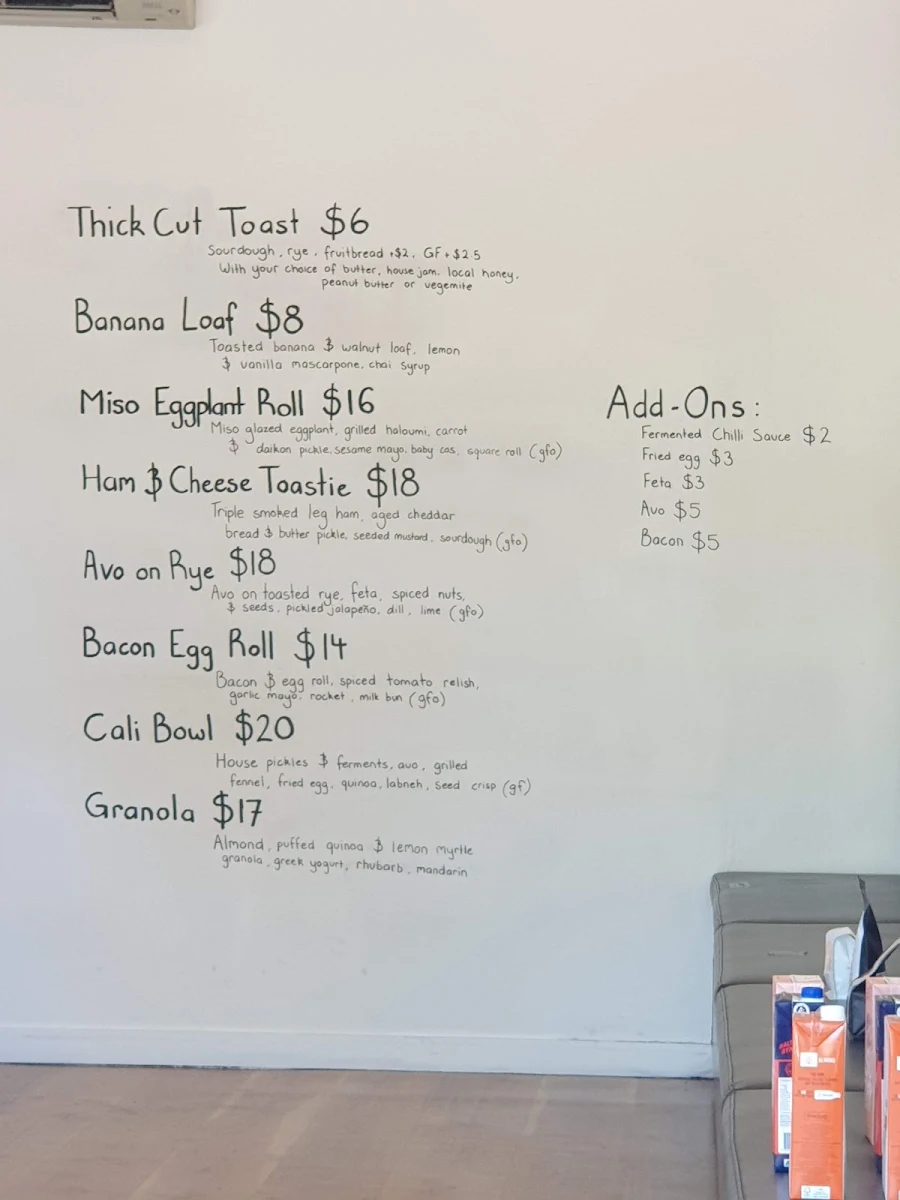 Thick Cut Toast $6
Sourdough, rye, fruitbread +$2, GF+$2.5
With your choice of butter, house jam, local honey,
peanut butter or vegemite
Banana Loaf $8
Toasted banana & walnut loaf, lemon
& vanilla mascarpone, chai syrup
Miso Eggplant Roll $16
Miso glazed eggplant, grilled haloumi, carrot
& daikon pickle, sesame mayo, baby cos, square roll (gfo)
Ham & Cheese Toastie $18
Triple smoked leg ham, aged cheddar
bread & butter pickle, seeded mustard, sourdough (gfo)
Avo on Rye $18
Avo on toasted rye, feta, spiced nuts,
& seeds, pickled jalapeño, dill, lime (gfo)
Bacon Egg Roll $14
Bacon & egg roll, spiced tomato relish,
garlic mayo, rocket, milk bun (gfo)
Cali Bowl $20
House pickles & ferments, avo, grilled
fennel, fried egg, quinoa, labneh, seed crisp (gf)
Granola $17
Almond, puffed quinoa & lemon myrtle
granola, greek yogurt, rhubarb, mandarin
Add-Ons:
Fermented Chilli Sauce $2
Fried egg $3
Feta $3
Avo $5
Bacon $5